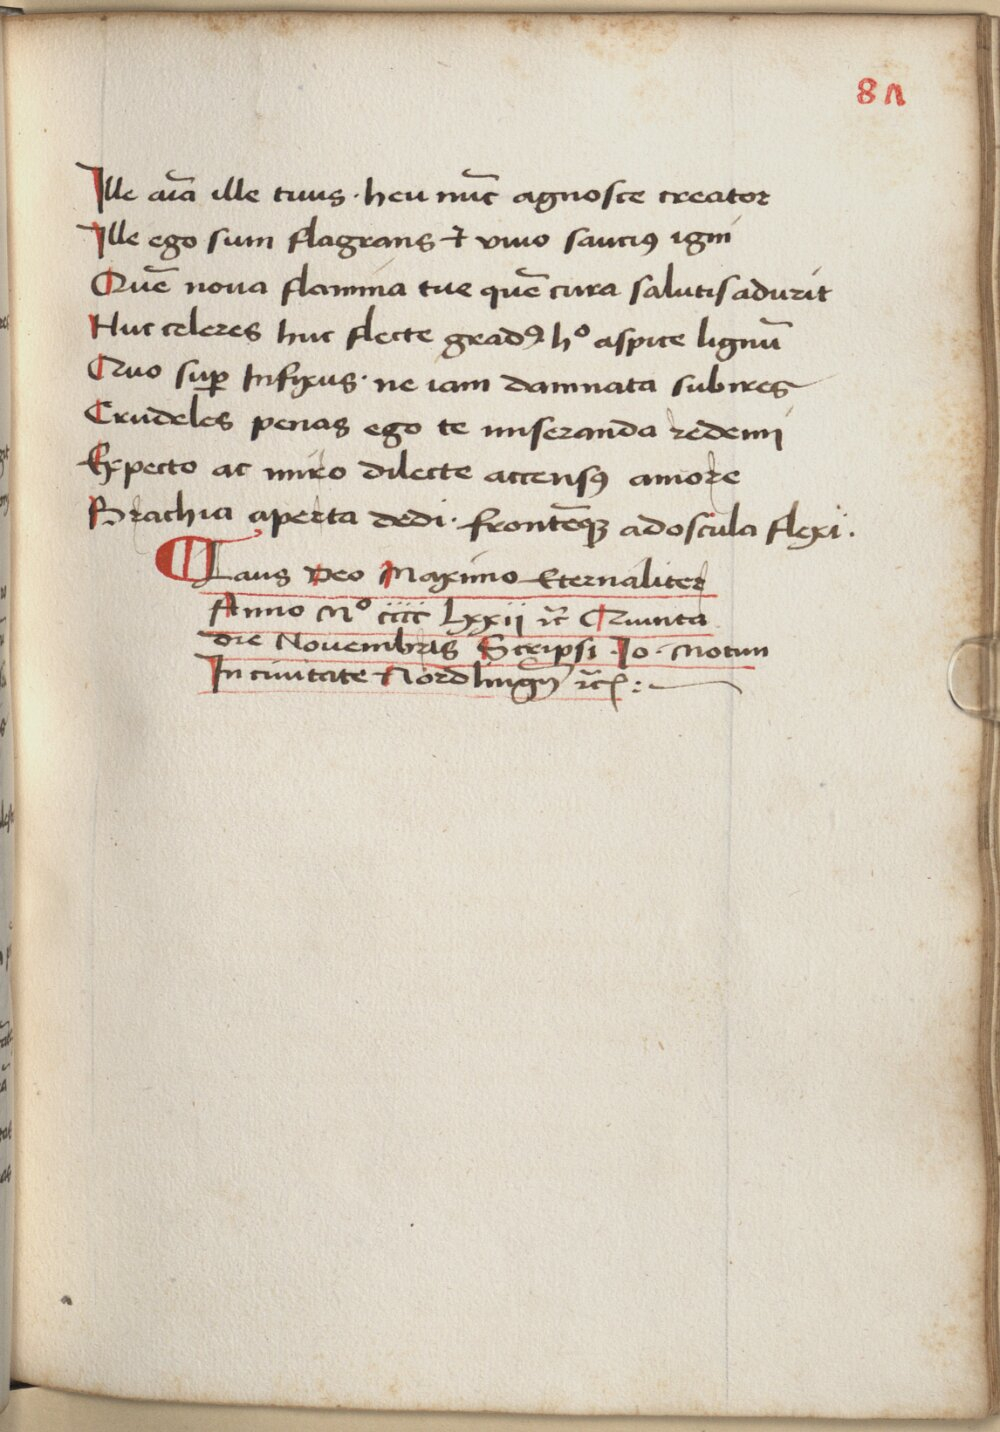 8Λ
Ille aīa ille tuus · heu nūc agnosce creator
Ille ego sum flagrans ⁊ viuo sauciꝰ igni
Quē noua flamma tue quē cura salutis adurit
Huc celeres huc flecte gradꝰ hº aspice lignū
Quo suꝑ Infixus · ne iam damnata subires
Crudeles penas ego te miseranda redemi
Expecto ac miro dilecte accensꝰ amore
Brachia aperta dedi · frontēqꝫ ad oscula flexi .
Laus Deo Maximo Eternaliter
Anno Mº cccc Lxxii ⁊c̄ Quinta
die Nouembris Scripsi Jo · Motun
In ciuitate Nordling ⁊c̄ :